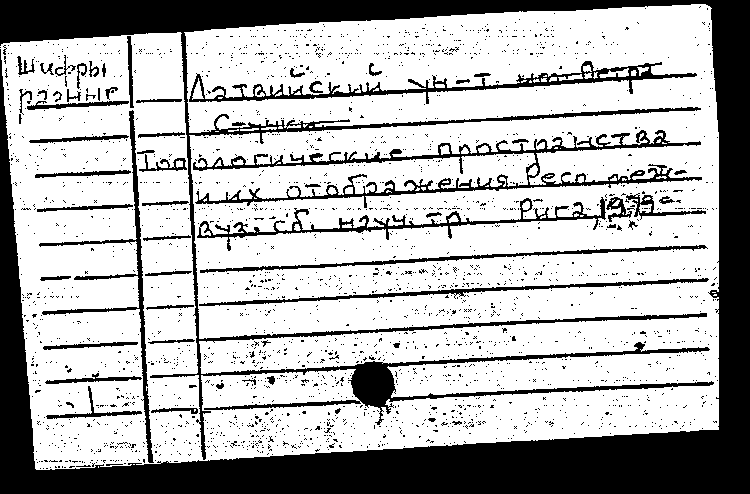 Шифры
разные
Латвийский ун-т. им. Петра
Стучки.
Топологические пространства
и их отображения Респ. меж-
вуз. сб. науч. тр. Рига, 1979-